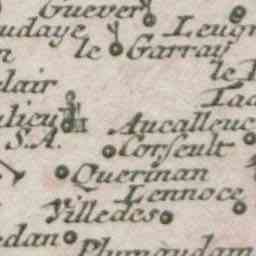 Guever
udaye
Leugr
le Garray
le
lair
ulieu
S.A.
Aucalleuc
Corseult
Querinan
Lennoce
Villedes
edan
Plumaudam